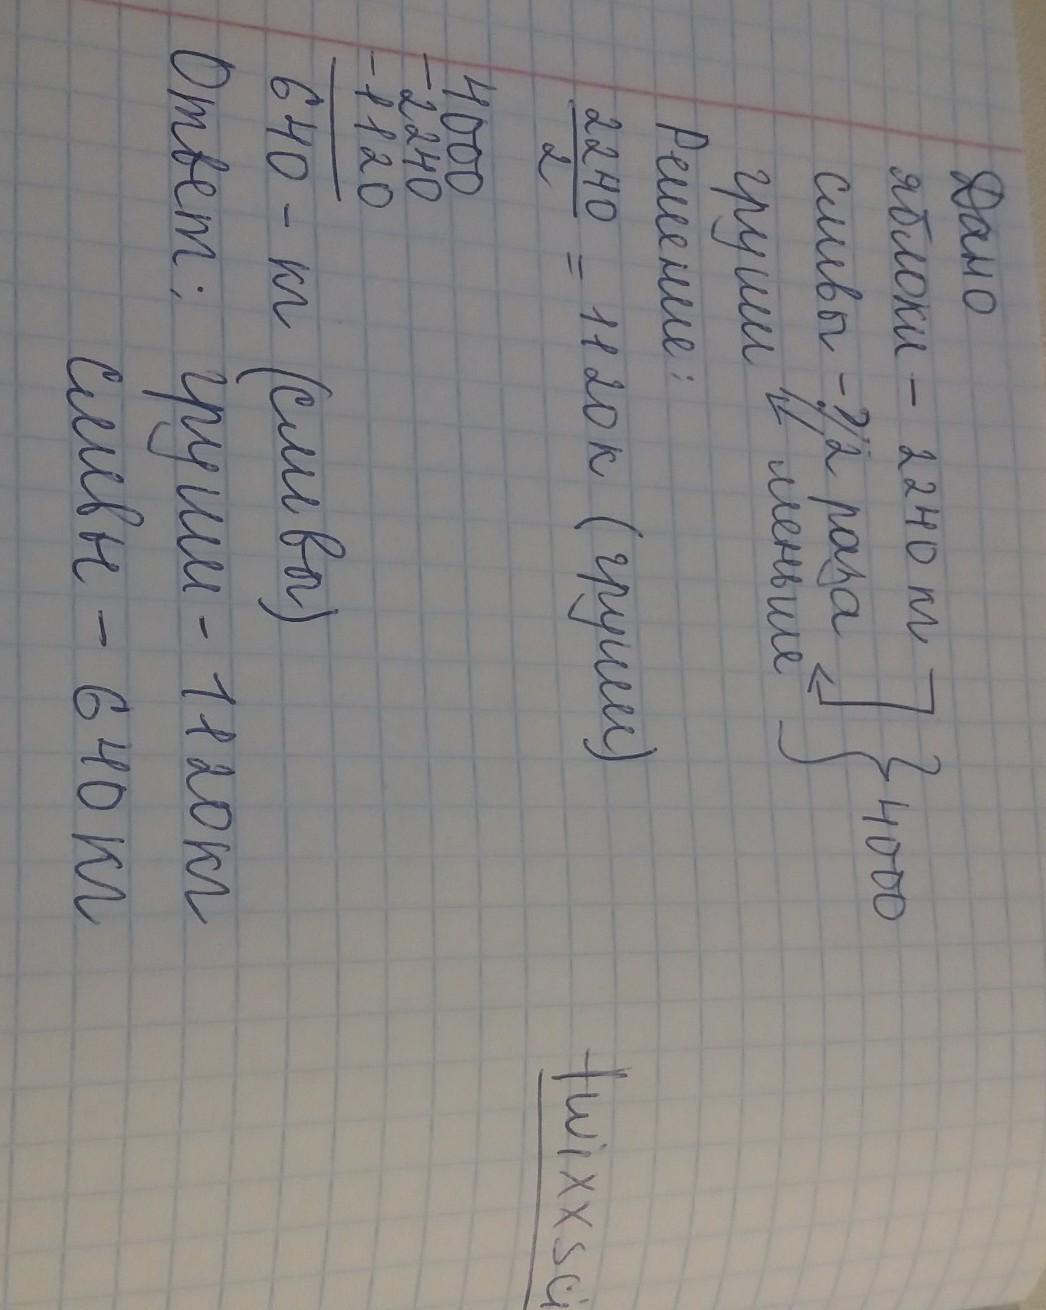 Дано
яблоки - 2240 кг
сливы - ?
груши - в 2 раза меньше
4000
Решение:
2240
2
= 1120к (груши)
4000
-2240
-1120
640 - кг (сливы)
Ответ: груши - 1120кг
сливы - 640кг
twixxsci